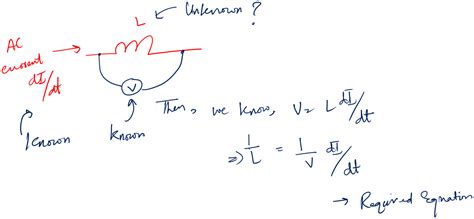 L ← Unknown ?
AC
current
dI/dt
V
known
known
Then, we know, V = L dI/dt
⇒ 1/L = 1/V dI/dt
→ Required Equation